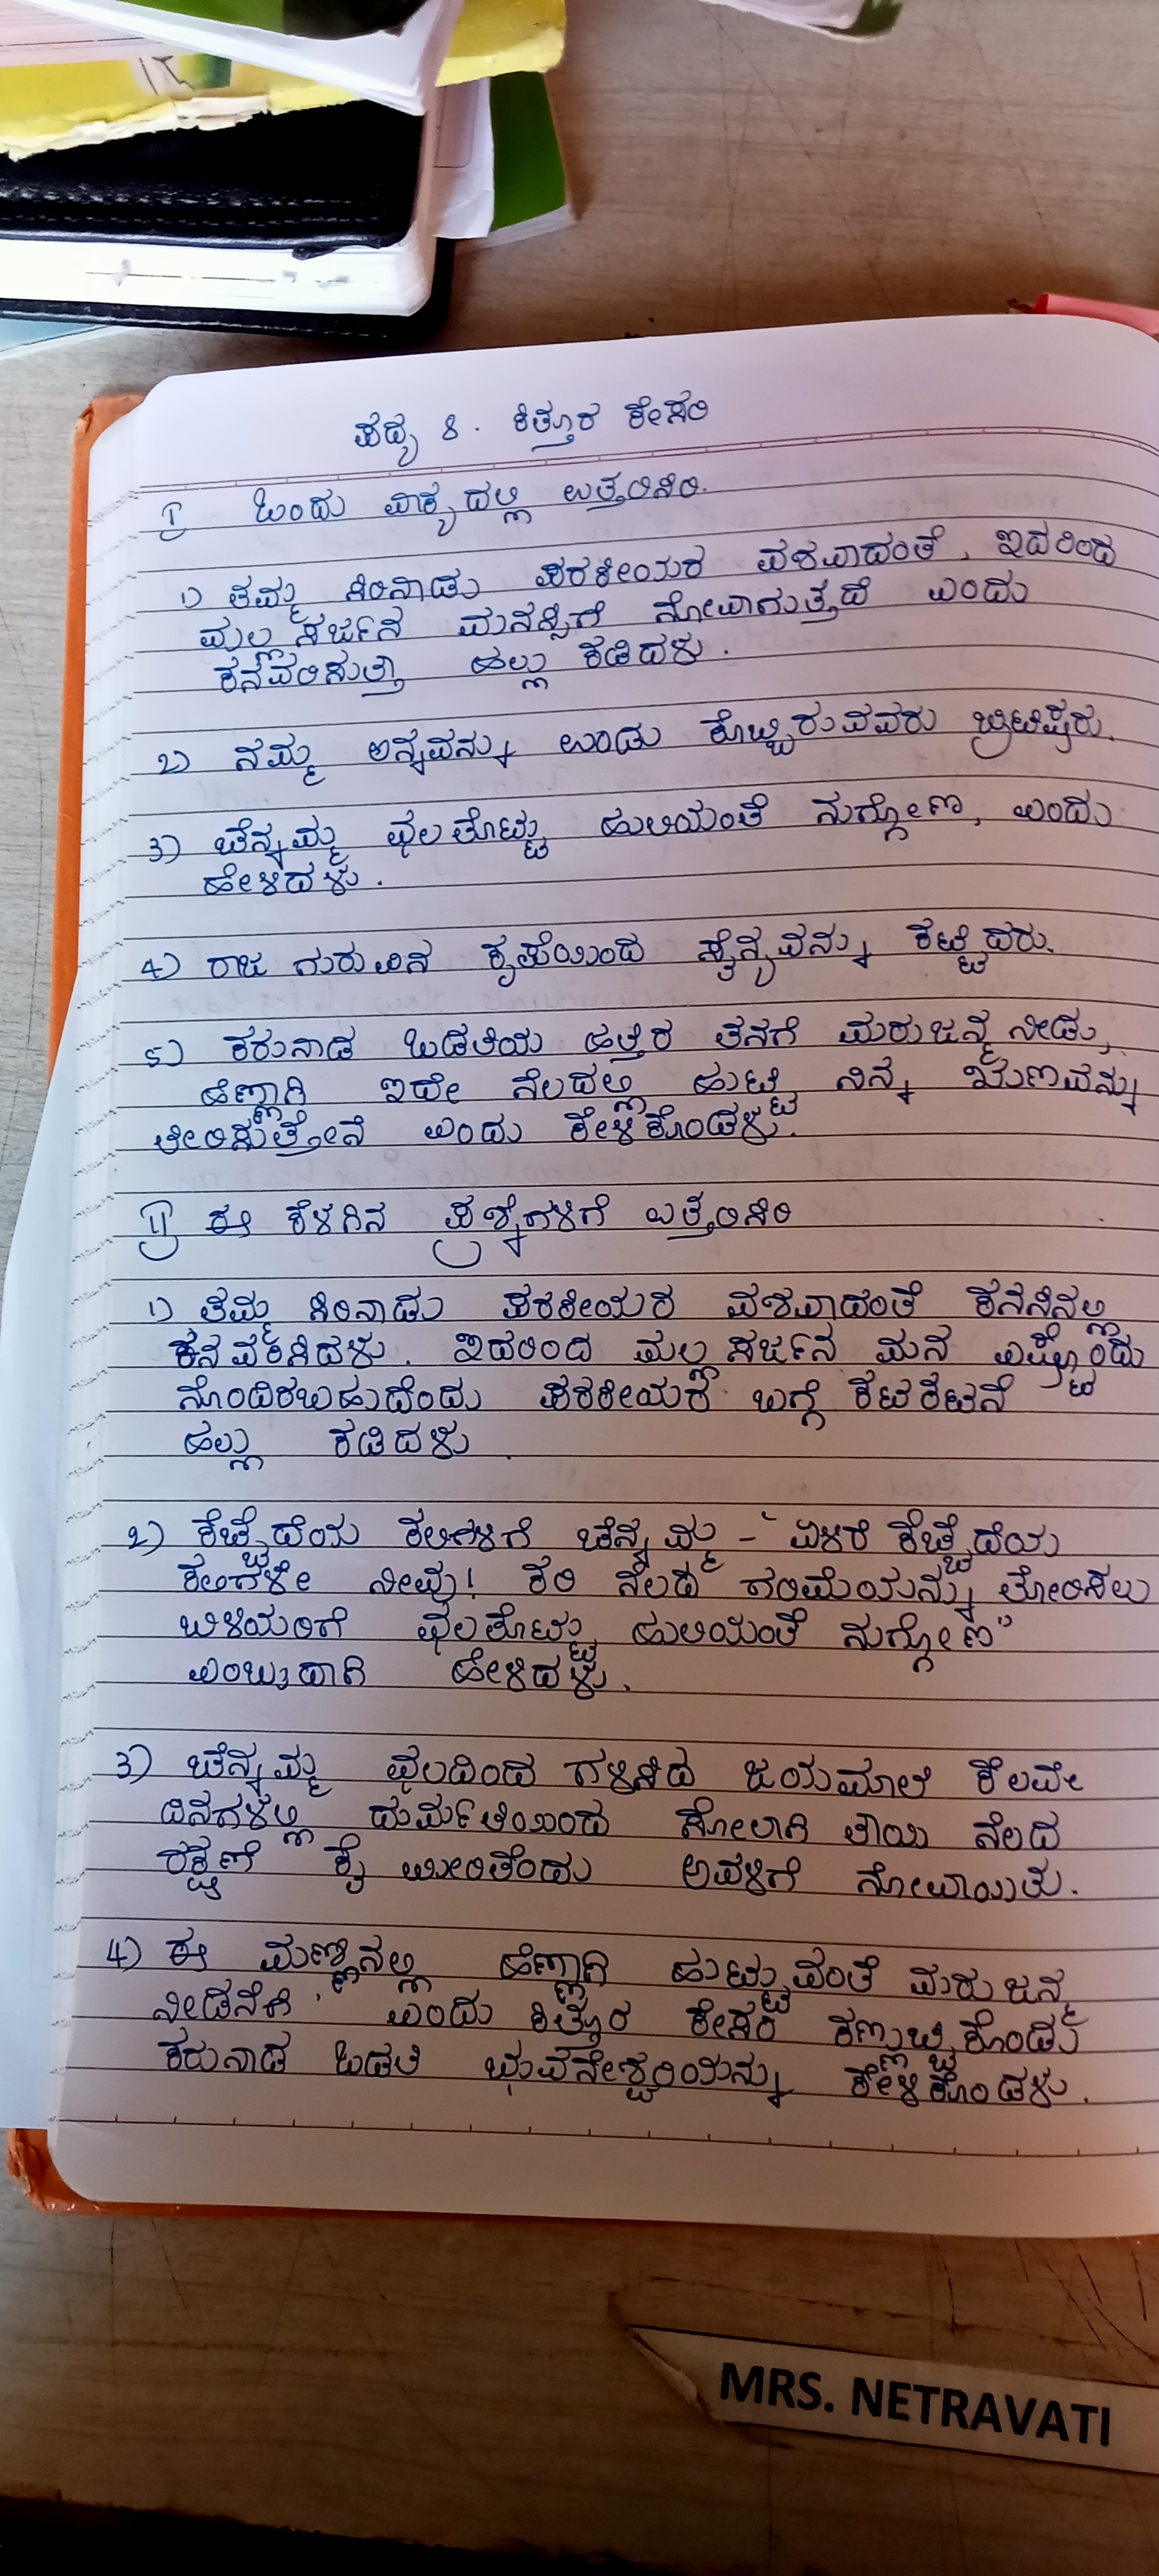 ಪದ್ಯ 8. ಕಿತ್ತೂರ ಕೇಸರಿ
I ಒಂದು ವಾಕ್ಯದಲ್ಲಿ ಉತ್ತರಿಸಿರಿ.
1) ತಮ್ಮ ಸಿರಿನಾಡು ಪರಕೀಯರ ವಶವಾದಂತೆ, ಇದರಿಂದ
ಮಲ್ಲಸರ್ಜನ ಮನಸ್ಸಿಗೆ ನೋವಾಗುತ್ತದೆ ಎಂದು
ಕನವರಿಸುತ್ತಾ ಹಲ್ಲು ಕಡಿದಳು.
2) ನಮ್ಮ ಅನ್ನವನ್ನು ಉಂಡು ಕೊಬ್ಬಿರುವವರು ಬ್ರಿಟಿಷರು.
3) ಚೆನ್ನಮ್ಮ ಛಲತೊಟ್ಟು ಹುಲಿಯಂತೆ ನುಗ್ಗೋಣ, ಎಂದು
ಹೇಳಿದಳು.
4) ರಾಜ ಗುರುವಿನ ಕೃಪೆಯಿಂದ ಸೈನ್ಯವನ್ನು ಕಟ್ಟಿದರು.
5) ಕರುನಾಡ ಒಡತಿಯ ಹತ್ತಿರ ತನಗೆ ಮರುಜನ್ಮ ನೀಡು,
ಹೆಣ್ಣಾಗಿ ಇದೇ ನೆಲದಲ್ಲಿ ಹುಟ್ಟಿ ನಿನ್ನ ಋಣವನ್ನು
ತೀರಿಸುತ್ತೇನೆ ಎಂದು ಕೇಳಿಕೊಂಡಳು.
II ಈ ಕೆಳಗಿನ ಪ್ರಶ್ನೆಗಳಿಗೆ ಉತ್ತರಿಸಿರಿ
1) ತಮ್ಮ ಸಿರಿನಾಡು ಪರಕೀಯರ ವಶವಾದಂತೆ ಕನಸಿನಲ್ಲಿ
ಕನವರಿಸಿದಳು. ಇದರಿಂದ ಮಲ್ಲಸರ್ಜನ ಮನ ಎಷ್ಟೊಂದು
ನೊಂದಿರಬಹುದೆಂದು ಪರಕೀಯರ ಬಗ್ಗೆ ಕಟಕಟನೆ
ಹಲ್ಲು ಕಡಿದಳು.
2) ಕೆಚ್ಚೆದೆಯ ಕಲಿಗಳಿಗೆ ಚೆನ್ನಮ್ಮ - "ಏಳಿರಿ ಕೆಚ್ಚೆದೆಯ
ಕಲಿಗಳೇ ನೀವು! ಕರಿ ನೆಲದ ಗರಿಮೆಯನ್ನು ತೋರಿಸಲು
ಬಿಳಿಯರಿಗೆ ಛಲತೊಟ್ಟು ಹುಲಿಯಂತೆ ನುಗ್ಗೋಣ"
ಎಂಬುದಾಗಿ ಹೇಳಿದಳು.
3) ಚೆನ್ನಮ್ಮ ಛಲದಿಂದ ಗಳಿಸಿದ ಜಯಮಾಲೆ ಕೆಲವೇ
ದಿನಗಳಲ್ಲಿ ದುರ್ಮತಿಯಿಂದ ಸೋಲಾಗಿ ತಾಯಿ ನೆಲದ
ರಕ್ಷಣೆ ಕೈ ಮೀರಿತೆಂದು ಅವಳಿಗೆ ನೋವಾಯಿತು.
4) ಈ ಮಣ್ಣಿನಲ್ಲಿ ಹೆಣ್ಣಾಗಿ ಹುಟ್ಟುವಂತೆ ಮರುಜನ್ಮ
ಎಂದು ಕಿತ್ತೂರ ಕೇಸರಿ ಕಣ್ಣುಚ್ಚಿಕೊಂಡು
ಕರುನಾಡ ಒಡತಿ ಭುವನೇಶ್ವರಿಯನ್ನು ಕೇಳಿಕೊಂಡಳು.
MRS. NETRAVATI